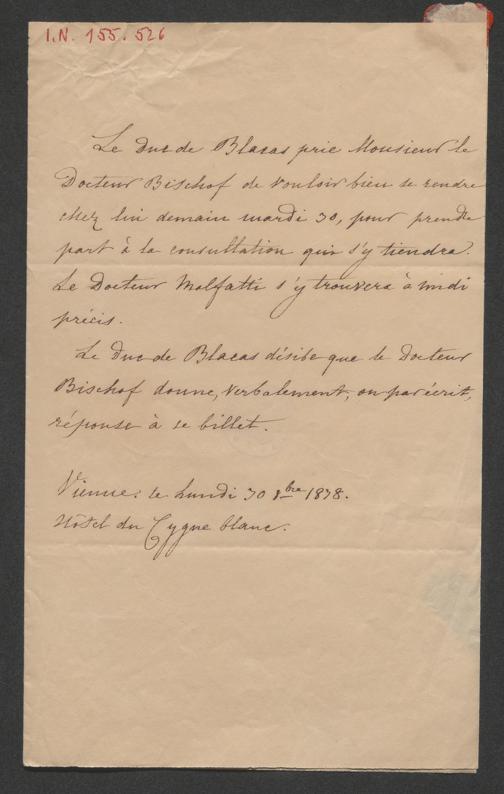 I.N. 155.526
Le Duc de Blacas prie Monsieur le
Docteur Bischof de vouloir bien se rendre
chez lui demain mardi 30, pour prendre
part à la consultation qui s'y tiendra.
Le Docteur Malfatti s'y trouvera à midi
précis.
Le Duc de Blacas désire que le Docteur
Bischof donne, verbalement, ou par écrit,
réponse à ce billet.
Vienne: le Lundi 30 8bre 1838.
Hôtel du Cygne blanc.